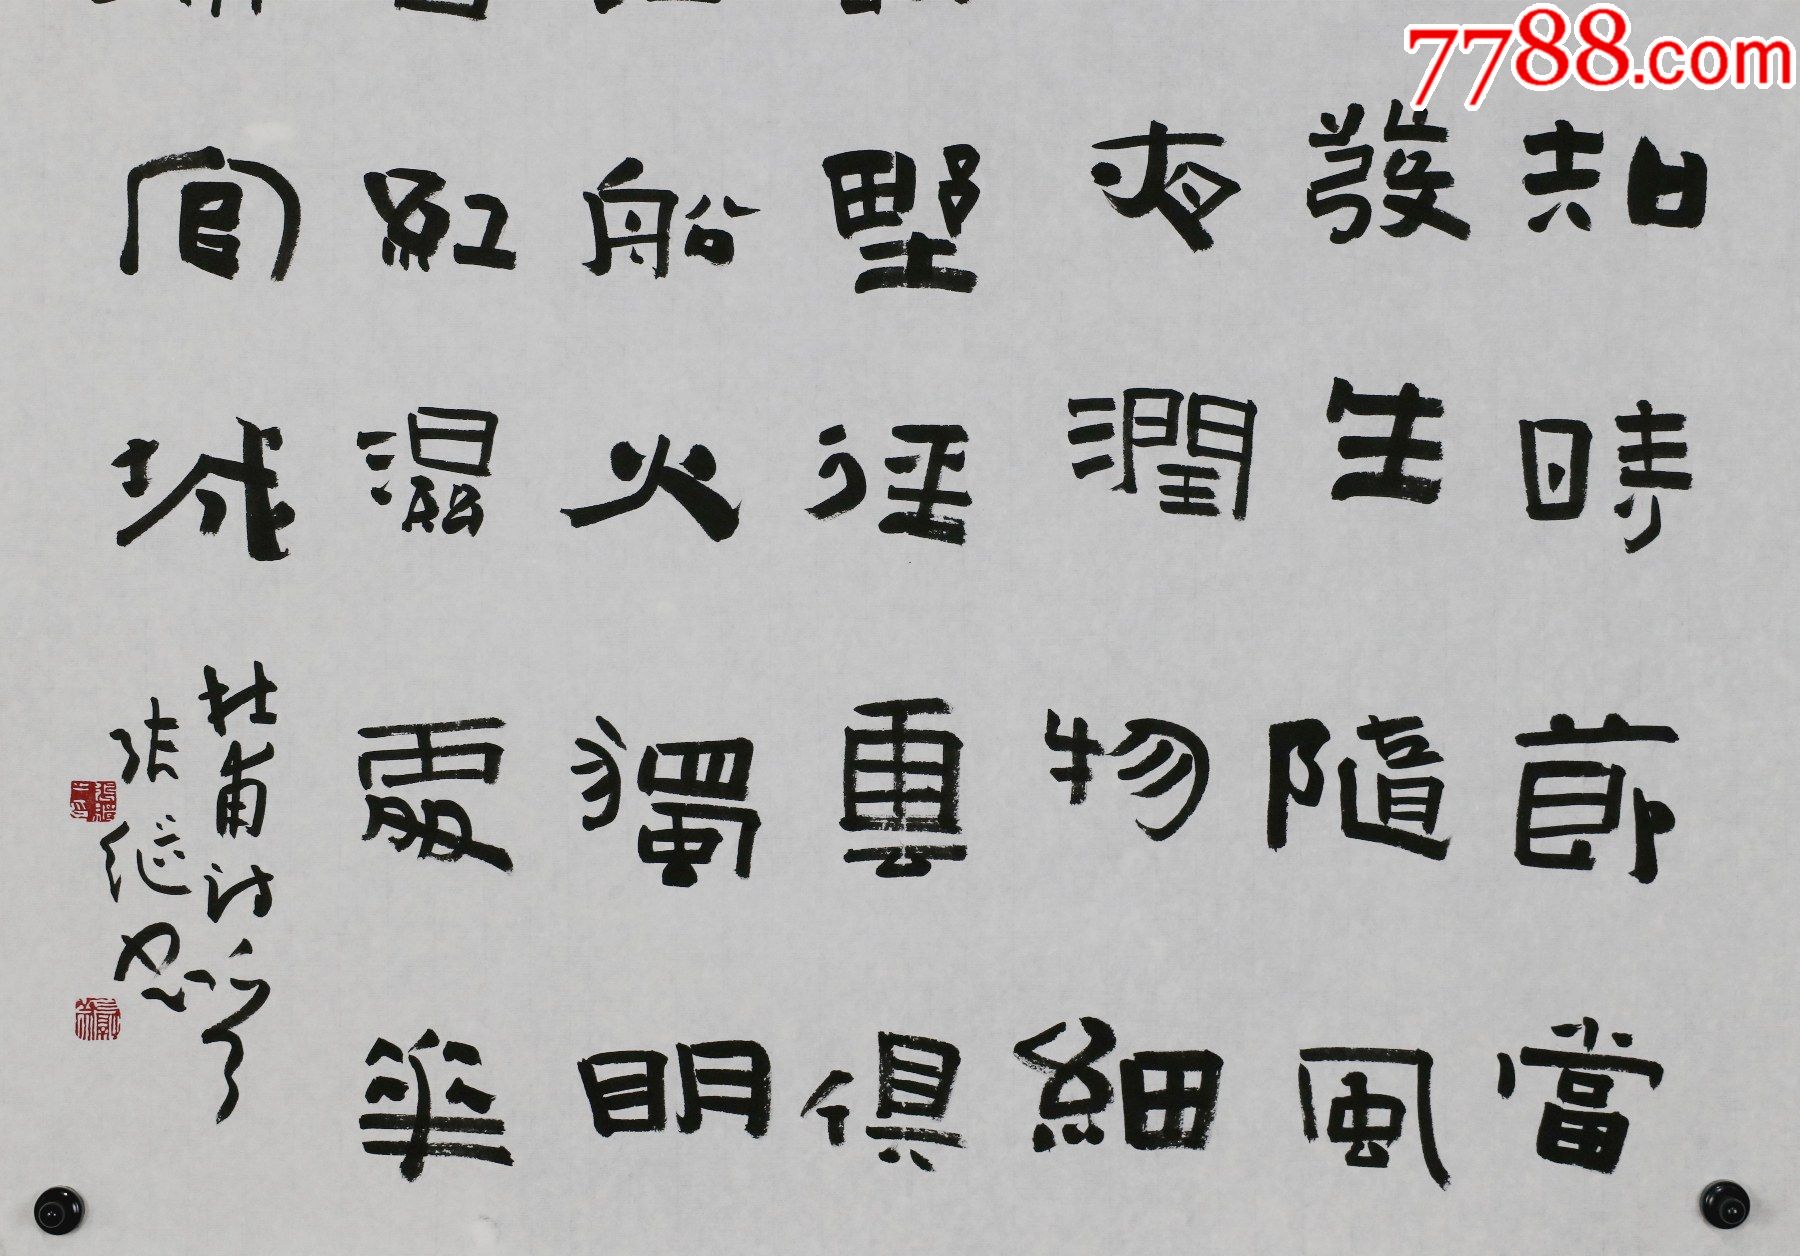 7788.com
知時節當
發生隨風
夜潤物細
野徑雲俱
船火獨明
紅濕處華
官城
杜甫诗
张继